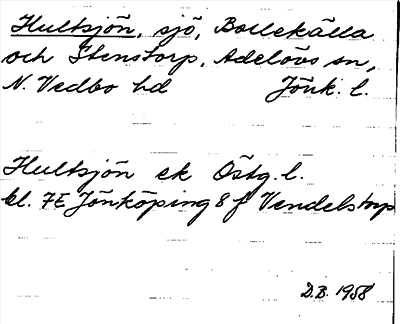 Hultsjön, sjö, Bollekälla
och Stenstorp, Adelövs sn,
N. Vedbo hd Jönk. l.
Hultsjön ek Östg. l.
bl. 7E Jönköping 8 f Vendelstorp
D.B. 1958